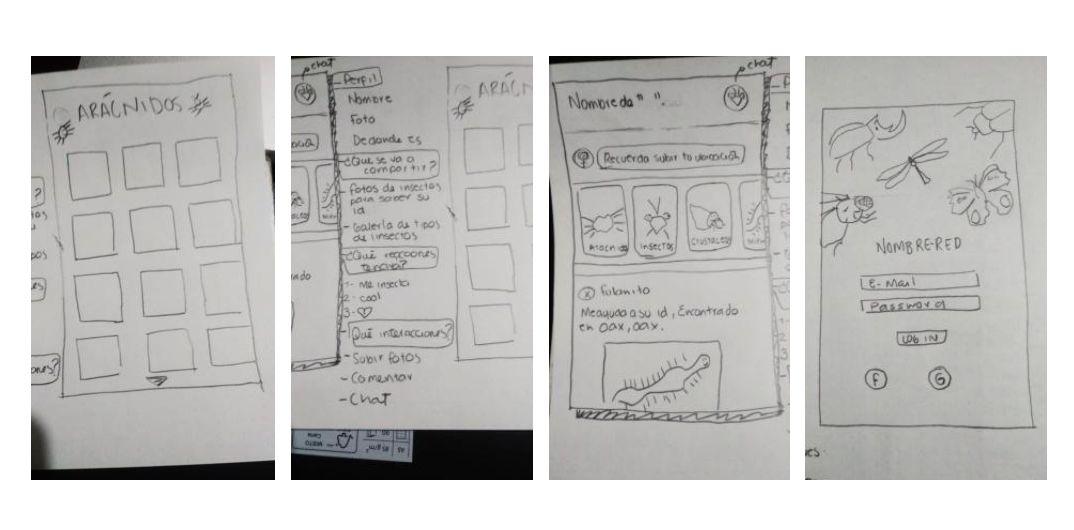 ARÁCNIDOS
?
chat
Perfil
Nombre
Foto
De donde es
¿Que se va a
compartir?
- Fotos de insectos
para saber su
id
- Galería de tipos
de insectos
¿Qué reacciones
tendra?
1- Me insecta
2- cool
3- ♡
Qué interacciones?
- Subir fotos
- Comentar
- Chat
ARÁCN
chat
Nombre de " ".
Recuerda subir tu ubicación
Arácnidos
Insectos
Crustaceos
Fulanito
Me ayuda a su id, Encontrado
en oax, oax.
NOMBRE-RED
E-Mail
Password
LOG IN
F
G